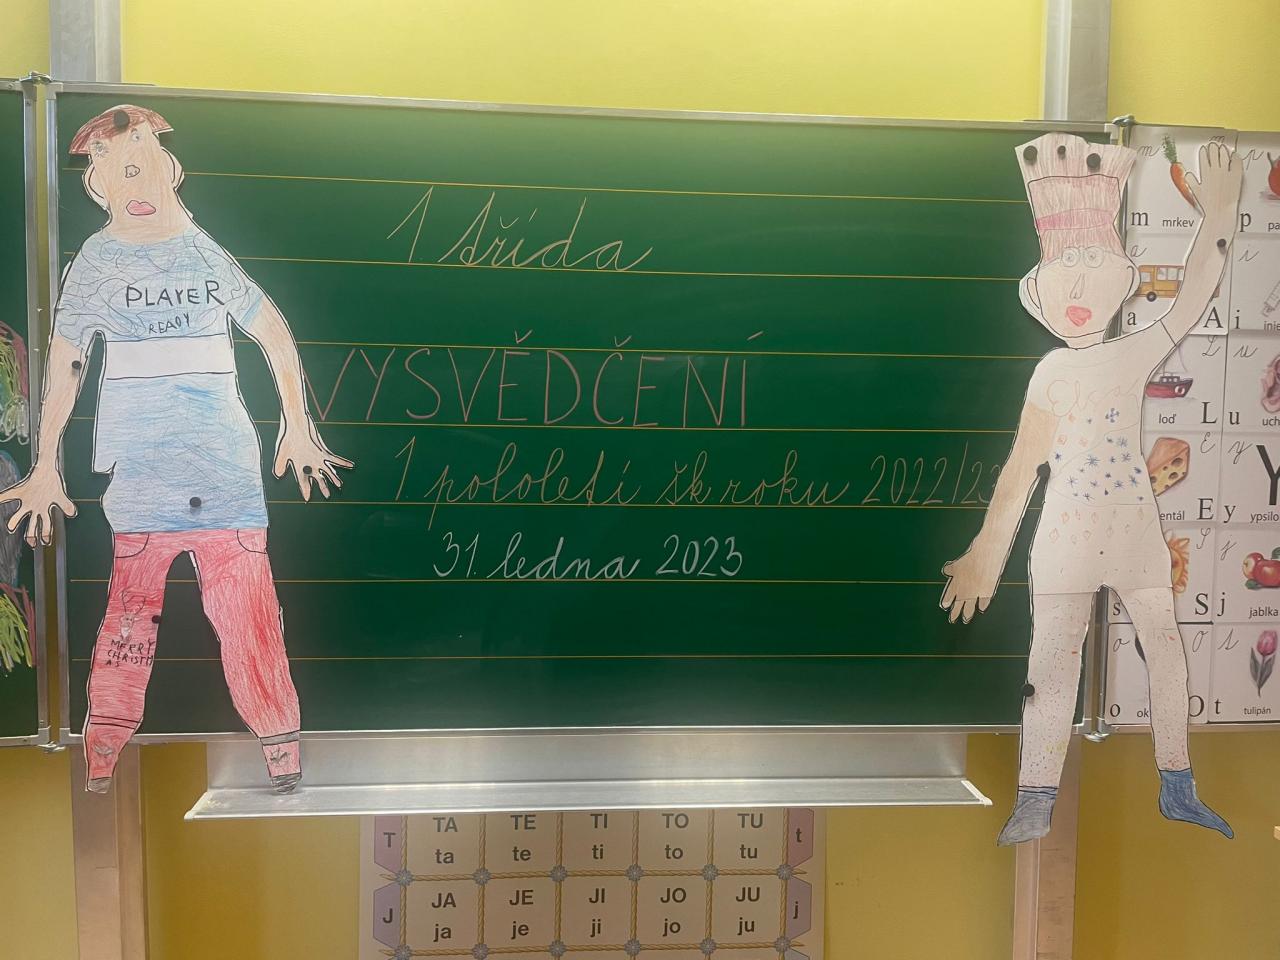 1. třída
VYSVĚDČENÍ
1. pololetí šk. roku 2022/23
31. ledna 2023
PLAYER
READY
MERRY
CHRISTM
AS
m
m mrkev
p
p pa
a
a A
i
i inje
L
loď L
u
u uch
E
entál E
y
y Y ypsilo
S
s S
j
j jablka
o
o ok O
s
t tulipán
T TA TE TI TO TU t
ta te ti to tu
J JA JE JI JO JU j
ja je ji jo ju